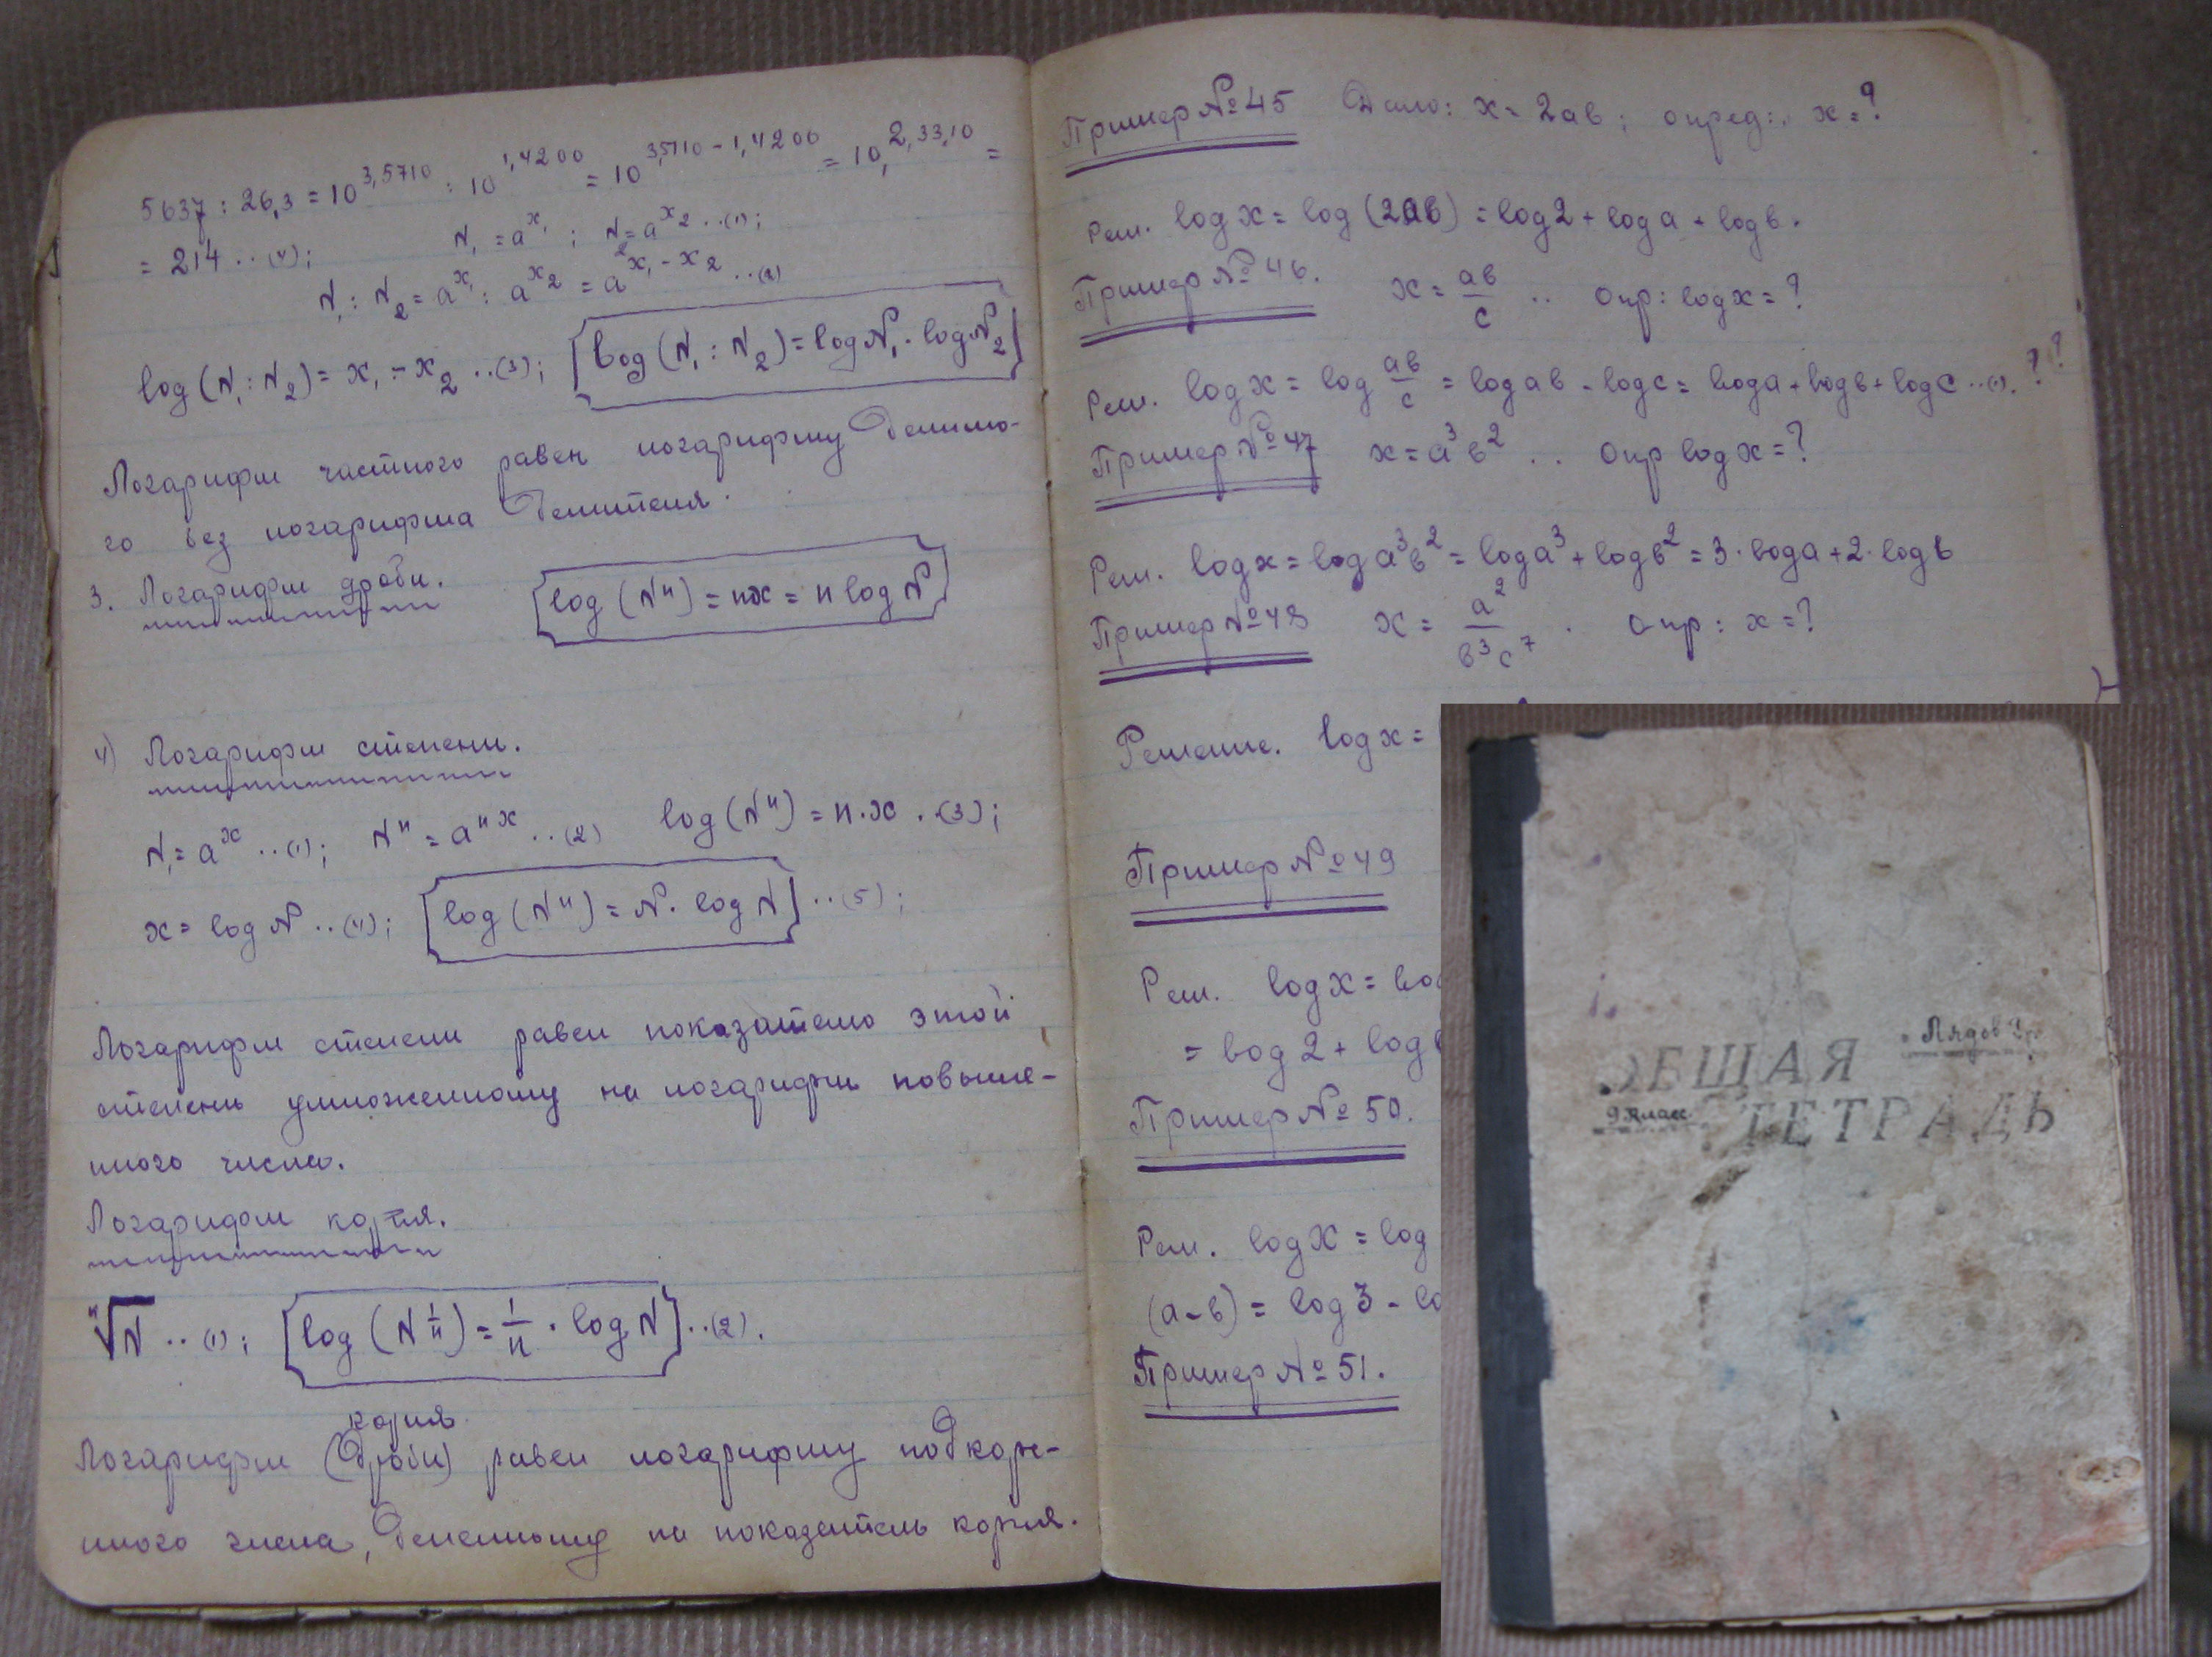 5637 : 26,3 = 10^3,5710 : 10^1,4200 = 10^3,5710 - 1,4200 = 10,^2,33,10 =
= 214 ..(4); N₁ = a^x₁ ; N₂ = a^x₂ ..(1);
N₁ : N₂ = a^x₁ : a^x₂ = a^x₁ - x₂ ..(2)
log (N₁ : N₂) = x₁ - x₂ ..(3); [log (N₁ : N₂) = log N₁ · log N₂]
Логарифм частного равен логарифму делимо-
го без логарифма делителя.
3. Логарифм дроби. [log (Nⁿ) = nx = n log N]
4) Логарифм степени.
N₁ = a^x ..(1); Nⁿ = a^nx ..(2) log (Nⁿ) = n·x ..(3);
x = log N ..(4); [log (Nⁿ) = N · log N] ..(5);
Логарифм степени равен показателю этой
степени умноженному на логарифм повыше-
нного числа.
Логарифм корня.
ⁿ√N ..(1); [log (N^1/n) = 1/n · log N] ..(2).
корня
Логарифм (дроби) равен логарифму подкоре-
нного числа, деленному на показатель корня.
Пример №45 Дано: x = 2ав; опред: x = ?
Реш. log x = log (2ав) = log 2 + log a + log в.
Пример №46. x = ав/с .. Опр: log x = ?
Реш. log x = log ав/с = log ав - log c = log a + log в + log c ..(1). ? ?
Пример №47 x = a³в² .. Опр log x = ?
Реш. log x = log a³в² = log a³ + log в² = 3·log a + 2·log в
Пример №48 x = a²/в³c⁷ . Опр: x = ?
Решение. log x =
Пример №49
Реш. log x = log
= log 2 + log
Пример №50.
Реш. log x = log
(a-в) = log 3 -
Пример №51.
Лядов
ОБЩАЯ
9 класс
ТЕТРАДЬ